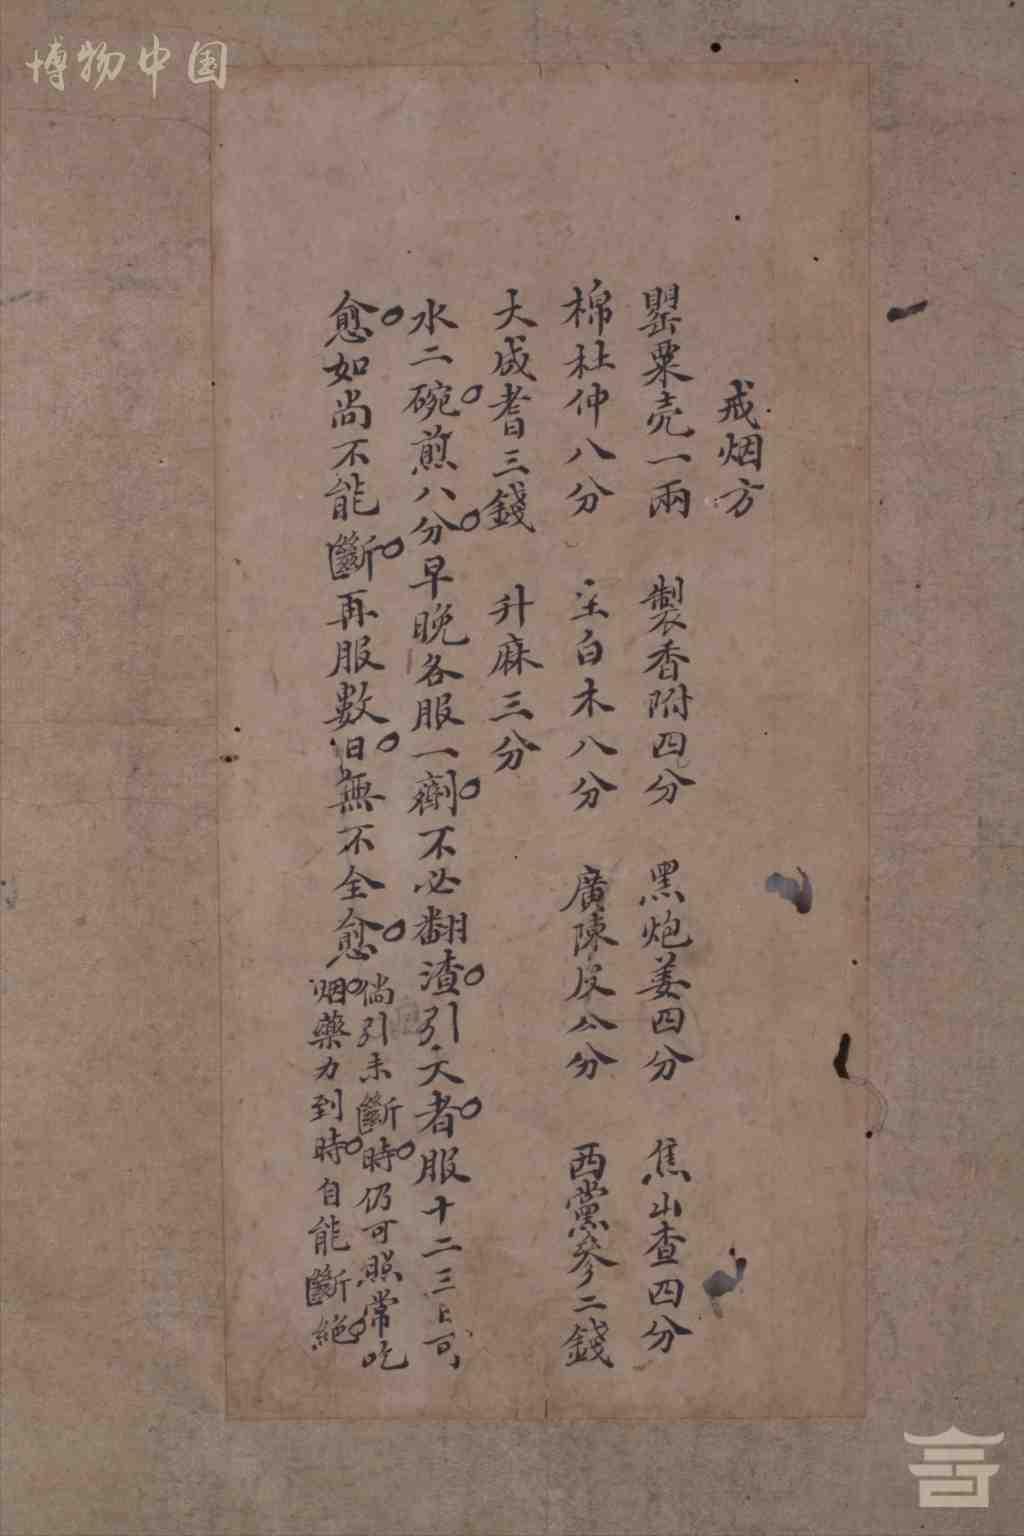 博物中国
戒烟方
罌粟壳一兩 製香附四分 黑炮姜四分 焦山查四分
棉杜仲八分 白木八分 廣陳皮八分 西黨參二錢
大成耆三錢 升麻三分
水二碗煎八分早晚各服一劑不必翻渣引大者服十二三日可
愈如尚不能斷再服數日無不全愈
倘引未斷時仍可照常吃
烟藥力到時自能斷絕